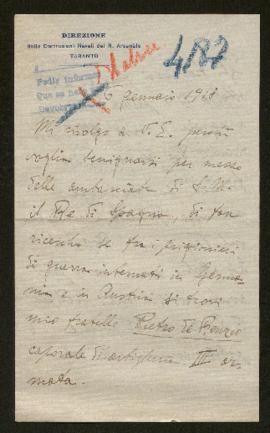 DIREZIONE
delle Costruzioni Navali del R. Arsenale
TARANTO
Italien
487
Pide informe
Que se ha
5 Gennaio 1918
Mi rivolgo a V. E. perchè
voglia benignarsi per mezzo
delle ambasciate di S. M.
il Re di Spagna, di far
ricerche se tra i prigionieri
di guerra internati in Germa-
nia e in Austria si trovi
mio fratello Pietro de Renzio
caporale d'artiglieria III ar-
mata.